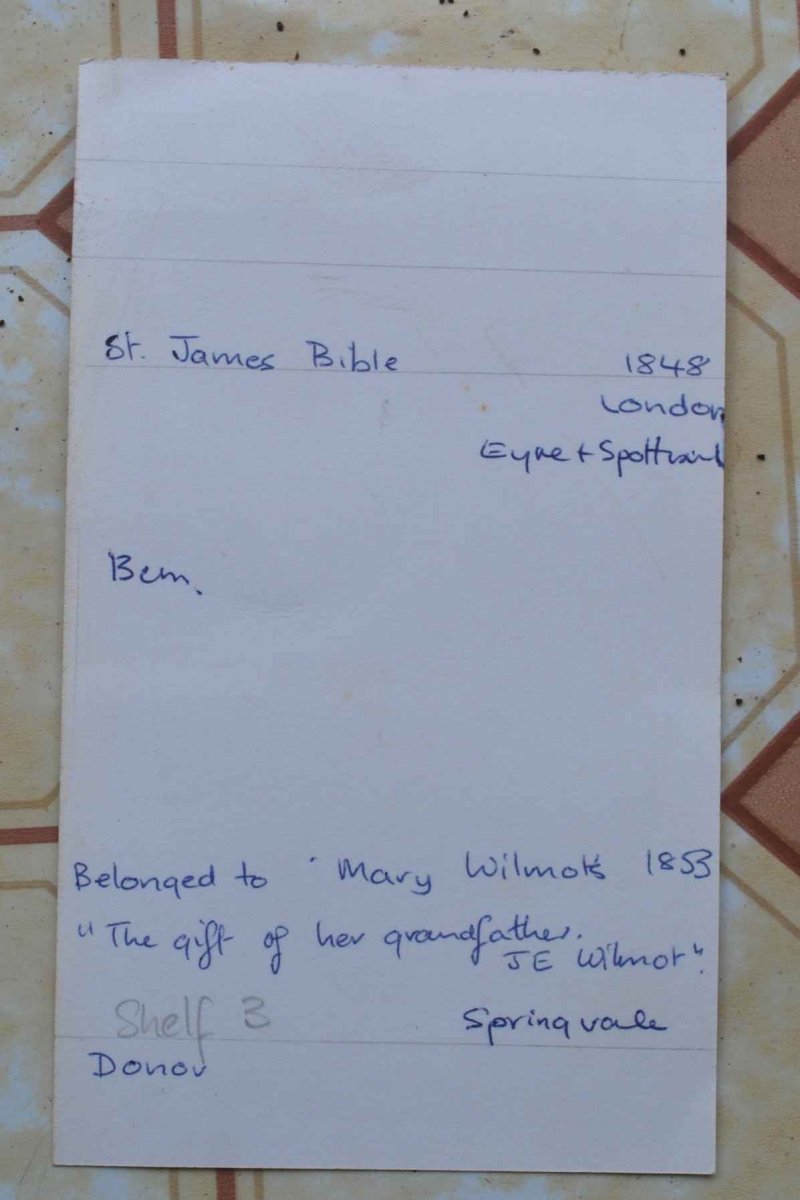 St. James Bible 1848
London
Eyre +
Bem.
Belonged to Mary Wilmots 1853
"The gift of her grandfather.
JE Wilmot".
Shelf 3 Springvale
Donor